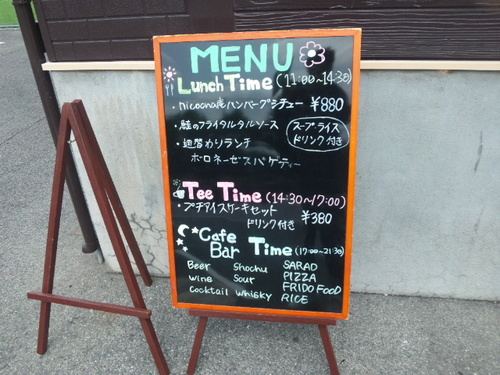 MENU
Lunch Time (11:00~14:30)
・nicoana風ハンバーグシチュー ¥880
・鮭のフライタルタルソース
スープ・ライス
ドリンク付き
・週替わりランチ
ボロネーゼスパゲティー
Tee Time (14:30~17:00)
・プチアイスケーキセット
ドリンク付き ¥380
Cafe
Bar Time (17:00~21:30)
Beer Shochu SARAD
Wine Sour PIZZA
Cocktail Whisky FRIDO FOOD
RICE